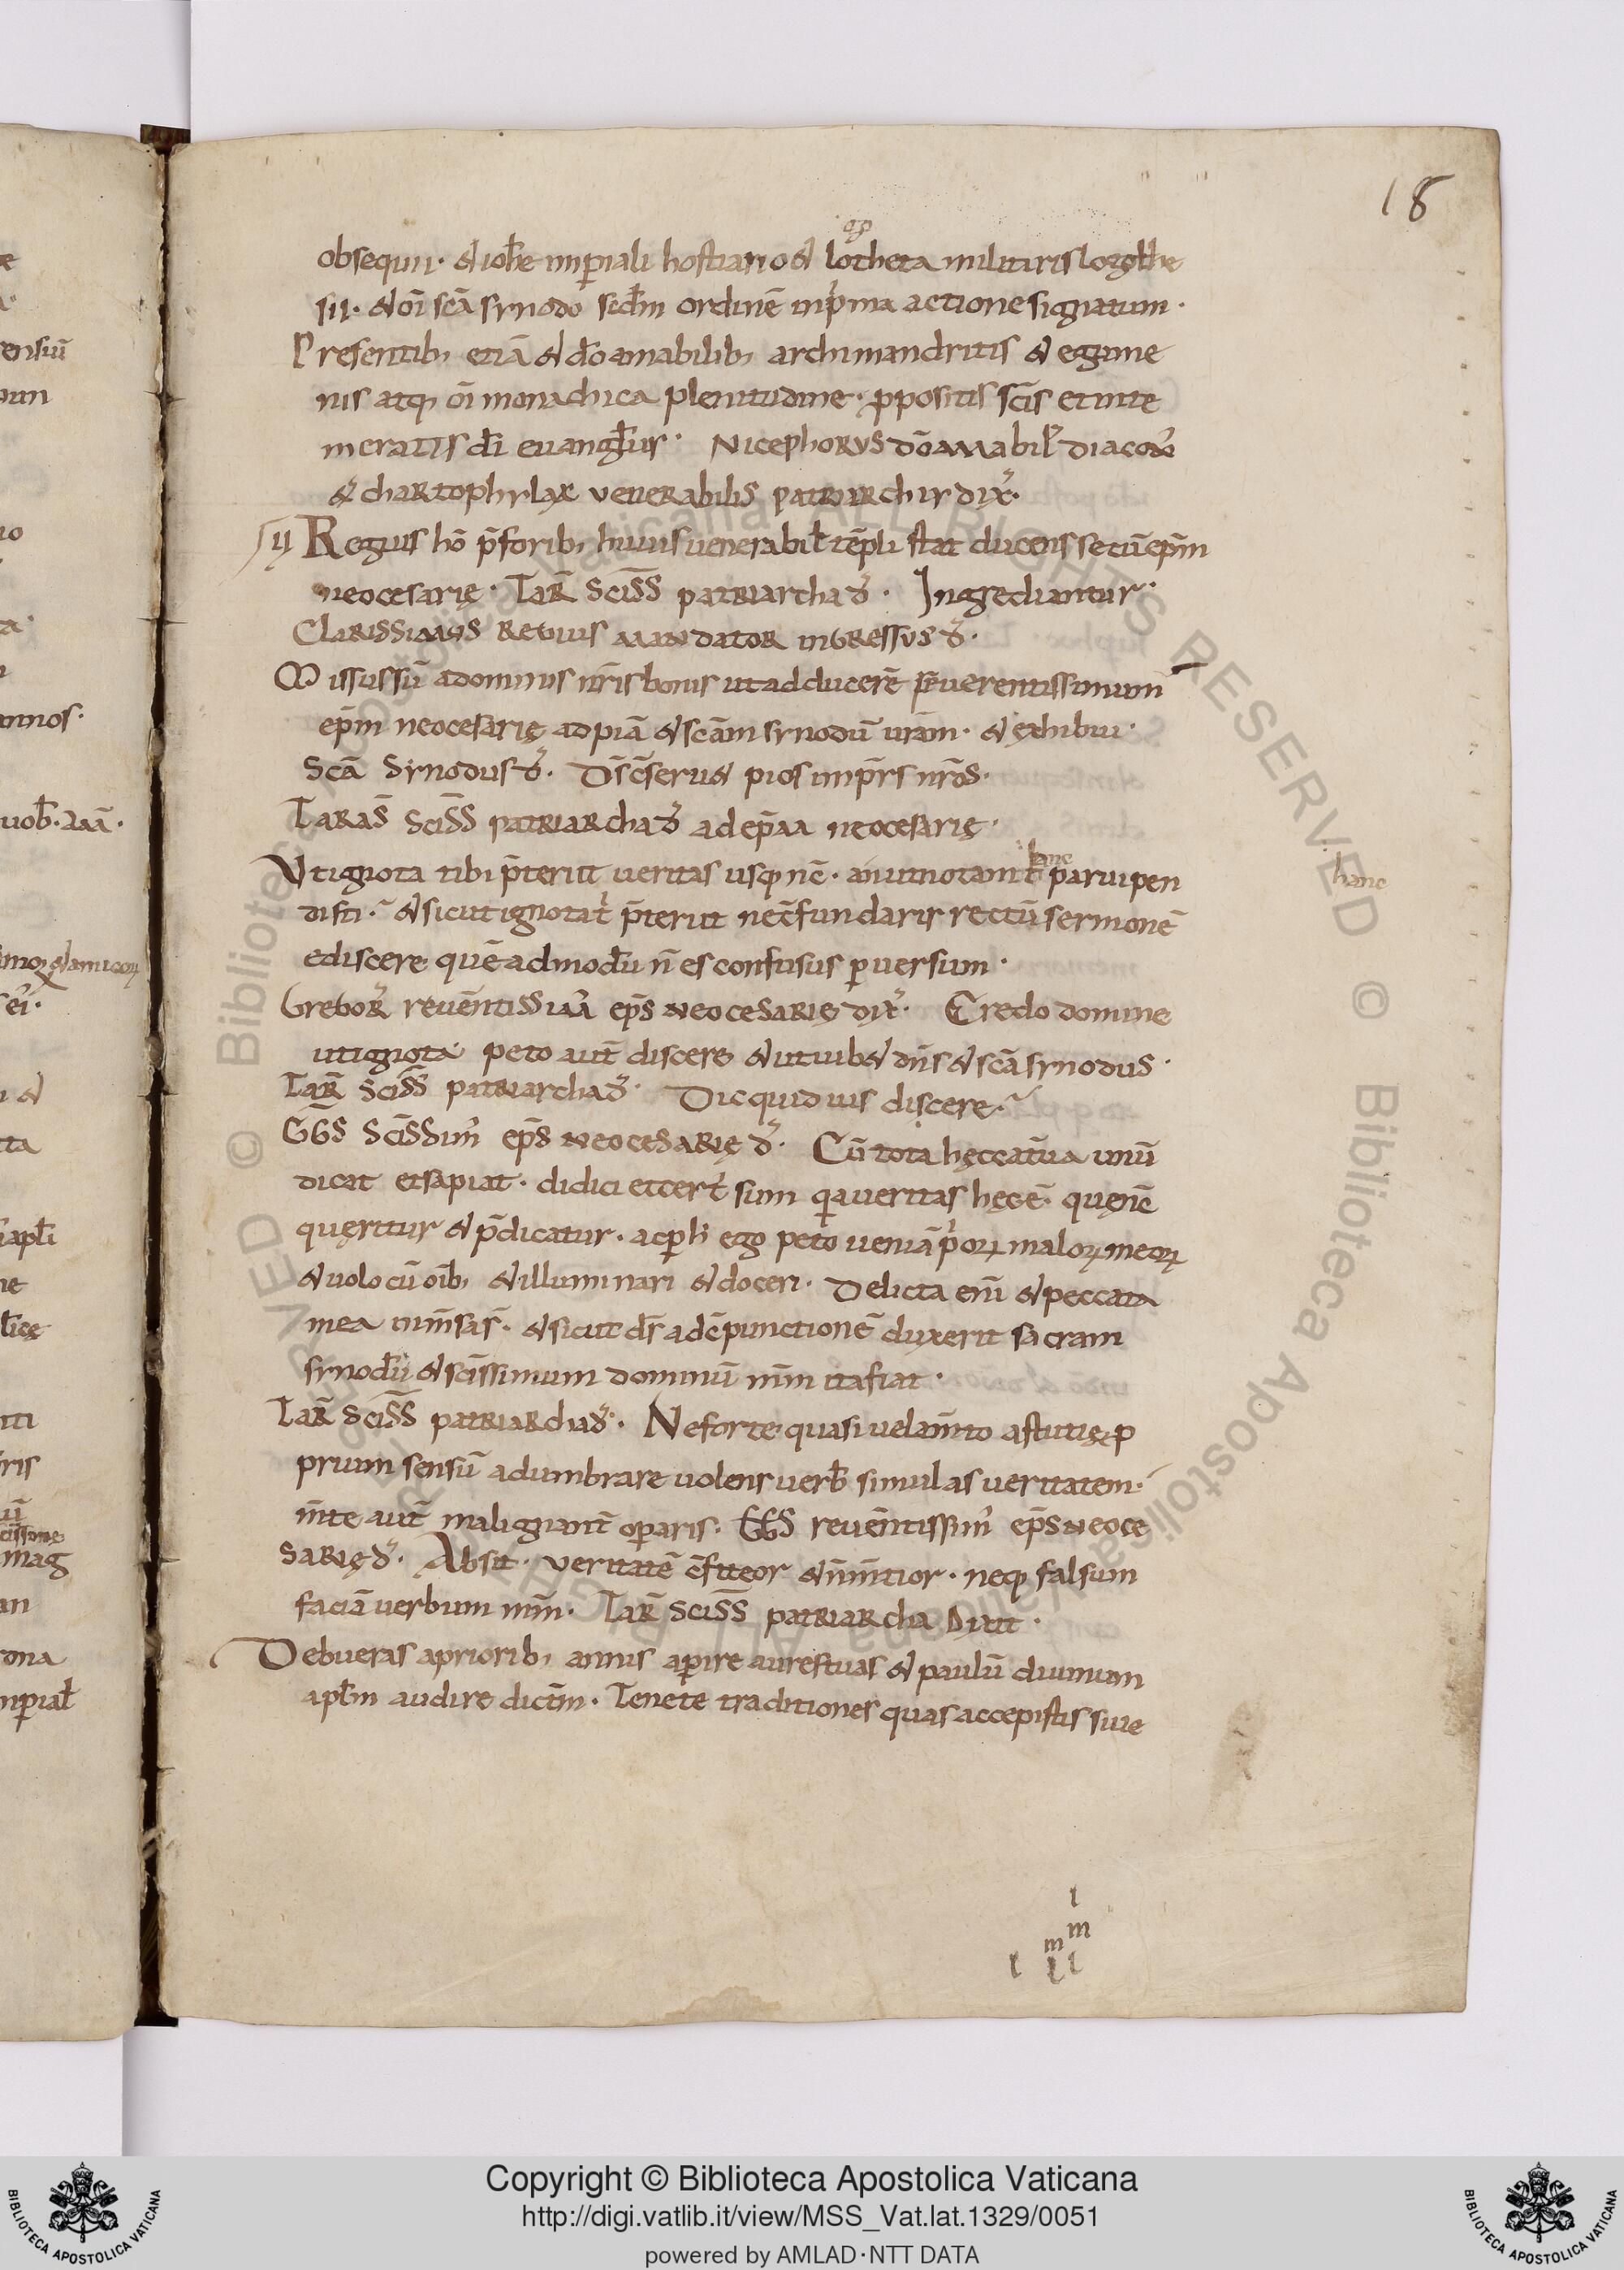 18
obsequii· & ioħe imp̄iali hostiario & lotheta militaris logothe
sii· & oī sc̄a synodo sec̄dm ordinē in p̓ma actione signatum·
Presentib; etiā & d̄o amabilib; archimandritis & egume
nis atq; oī monachica plenitudine· ꝓpositis sc̄is et inte
meratis dī euanglīis· Nicephorus dō amabil̓ diacon̓
& chartophylax venerabilis patriarchii dix̓·
ııı Regius hō p̄ forib; huius uenerabil̓ tēpli stat ducens secū ep̄m
neocesarię· Tar̄ sciss̄ patriarcha d̓· Ingrediantur·
Clarissimus regius mandator ingressus d̓·
Missus sū a dominis nr̄is bonis ut adducerē reuerentissimum
ep̄m neocesarię ad piā & sc̄am synodū ur̄am· & exhibui·
Sc̄a synodus d̓· Ds̄ c̄seru& pios imp̄rs nr̄os·
Taras̄ sciss̄ patriarcha d̓ ad ep̄m neocesarię·
hanc
hanc
Vt ignota tibi p̄teriit ueritas usq; nc̄· an ut notam t̄ paruipen
disti· & sicut ignota t̓ p̄teriit nec̄ fundaris rectū sermonē
ediscere quēadmodū n̄ es confusus ꝑuersium·
Gregor̓ reuēntissim̓ ep̄s neocesarię dix̓· Credo domine
ut ignota· peto aut̄ discere & ut iub& dn̄s & sc̄a synodus·
Tar̄ sciss̄ patriarcha d̓· Dic quid uis discere·
GGS̄ sc̄issim̓ ep̄s neocesarię d̓· Cū tota hęc cat̄ua unū
dicat et sapiat· didici et cert̓ sum q̓a ueritas hęc ē· quę nc̄
quęritur & p̄dicatur· ac ꝑ h̓ ego peto ueniā p̓orꝝ malorꝝ meorꝝ
& uolo cū oīb; & illuminari & doceri· Delicta enī & peccata
mea inm̄sa s̄· & sicut ds̄ ad c̄punctionē duxerit sacram
synodū & sc̄issimum dominū nr̄m ita fiat·
Tar̄ sciss̄ patriarcha d̓· Ne forte quasi uelam̄to astutię ꝓ
prium sensū adumbrare uolens uerb̓ simulas ueritatem·
m̄te aut̄ malignant̄ oꝑaris· GGS̄ reuēntissim̓ ep̄s neoce
sarię d̓· Absit· veritatē c̄fiteor & n̄ m̄tior· neq; falsum
faciā uerbum mm̄· Tar̄ sciss̄ patriarcha dixit·
Debueras a priorib; annis aꝑire aures tuas & paulū diuinum
aplm̄ audire dictm̄· Tenete traditiones quas accepistis siue
Copyright © Biblioteca Apostolica Vaticana
http://digi.vatlib.it/view/MSS_Vat.lat.1329/0051
powered by AMLAD·NTT DATA
BIBLIOTECA APOSTOLICA VATICANA
BIBLIOTECA APOSTOLICA VATICANA